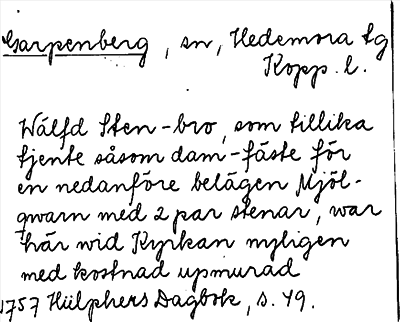 Garpenberg, sn, Hedemora tg
Kopp. l.
Wälfd Sten-bro, som tillika
tjente såsom dam-fäste för
en nedanföre belägen Mjöl-
qwarn med 2 par stenar, war
här wid Kyrkan nyligen
med kostnad upmurad
1757 Hülphers Dagbok, s. 49.